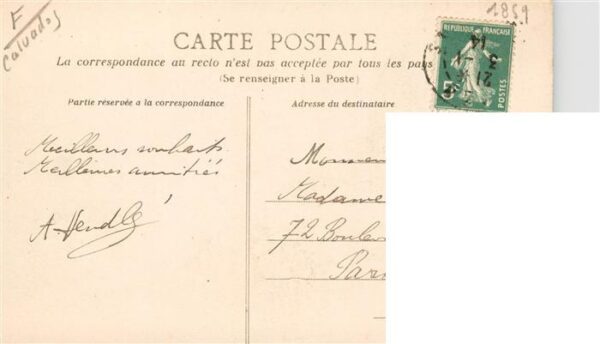 F
Calvados
1859
CARTE POSTALE
La correspondance au recto n'est pas acceptée par tous les pays
(Se renseigner à la Poste)
REPUBLIQUE FRANÇAISE
POSTES
5
21
3
14
Partie réservée a la correspondance
Adresse du destinataire
Meilleurs souhaits
Meilleures amitiés
A. Hendlé
Monsieur
Madame
72 Boulev
Par